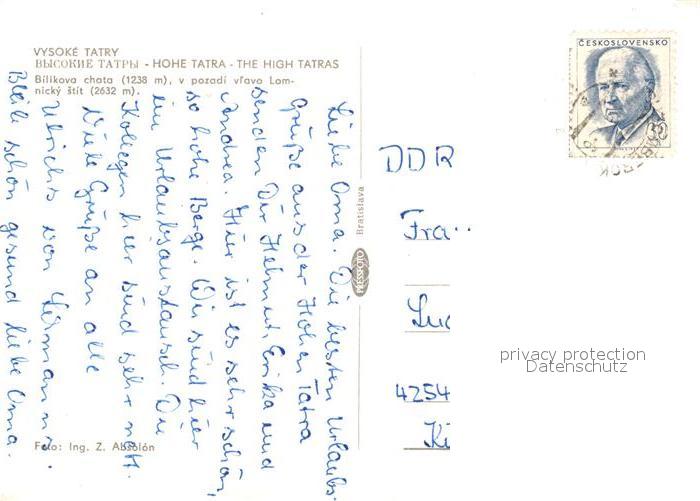 VYSOKÉ TATRY
ВЫСОКИЕ ТАТРЫ - HOHE TATRA - THE HIGH TATRAS
Bílikova chata (1238 m), v pozadí vľavo Lom-
nický štít (2632 m).
Liebe Oma. Die besten Urlaubs-
Grüße aus der Hohen Tatra
senden Dir Helmut, Erika und
Andrea. Hier ist es sehr schön,
so hohe Berge. Wir sind hier
im Urlaubsaustausch. Die
Kollegen hier sind sehr nett.
Viele Grüße an alle
Ulrichs von
Bleibe schön gesund liebe Oma.
Foto: Ing. Z. Absolón
Bratislava
PRESSFOTO
ČESKOSLOVENSKO
30
DDR
Fra
4254
privacy protection
Datenschutz